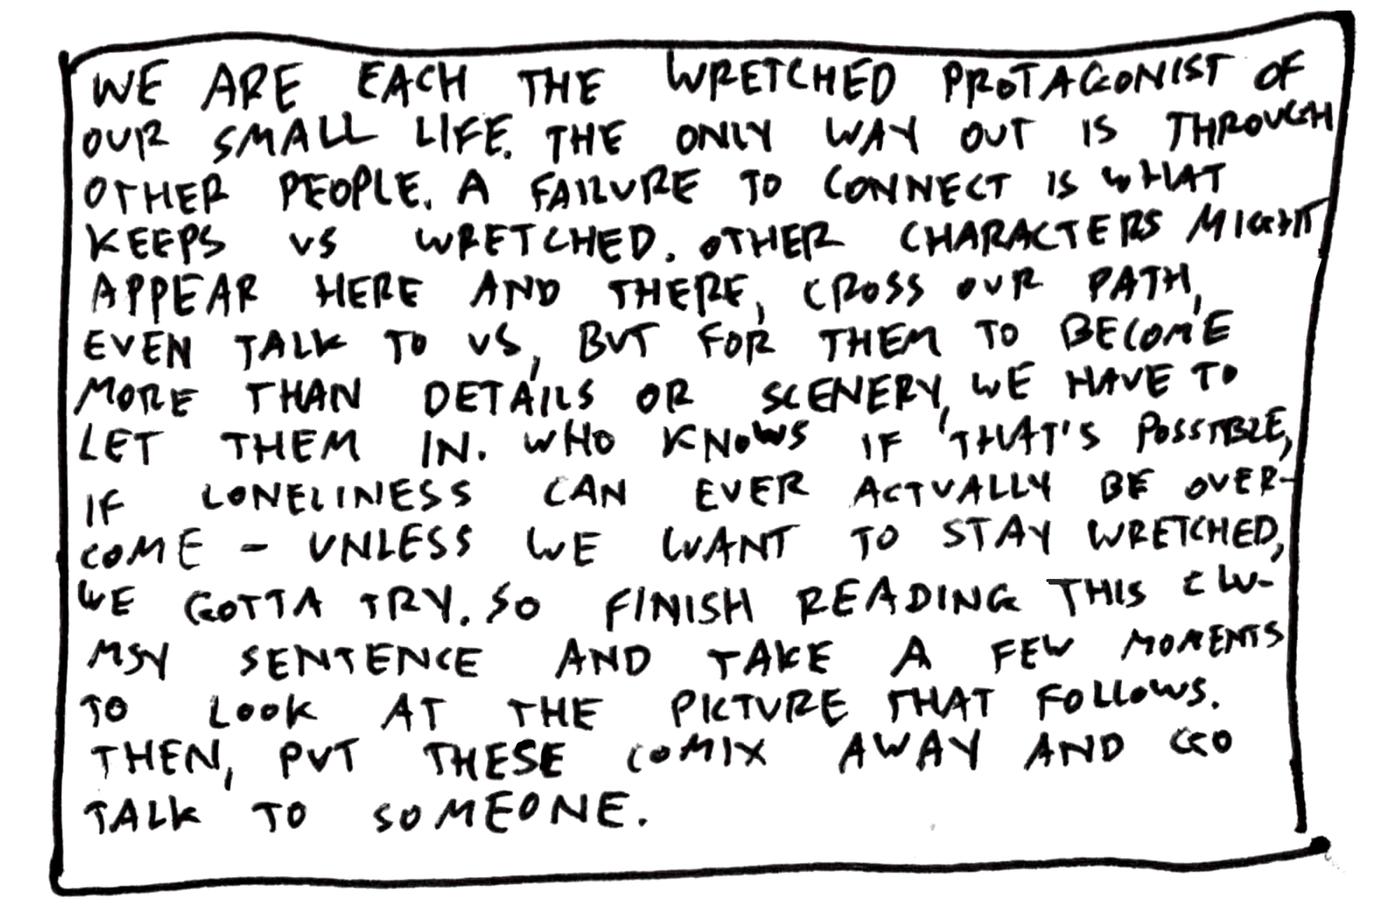 WE ARE EACH THE WRETCHED PROTAGONIST OF
OUR SMALL LIFE. THE ONLY WAY OUT IS THROUGH
OTHER PEOPLE. A FAILURE TO CONNECT IS WHAT
KEEPS US WRETCHED. OTHER CHARACTERS MIGHT
APPEAR HERE AND THERE, CROSS OUR PATH,
EVEN TALK TO US, BUT FOR THEM TO BECOME
MORE THAN DETAILS OR SCENERY, WE HAVE TO
LET THEM IN. WHO KNOWS IF THAT'S POSSIBLE,
IF LONELINESS CAN EVER ACTUALLY BE OVER-
COME – UNLESS WE WANT TO STAY WRETCHED,
WE GOTTA TRY. SO FINISH READING THIS CLU-
MSY SENTENCE AND TAKE A FEW MOMENTS
TO LOOK AT THE PICTURE THAT FOLLOWS.
THEN, PUT THESE COMIX AWAY AND GO
TALK TO SOMEONE.